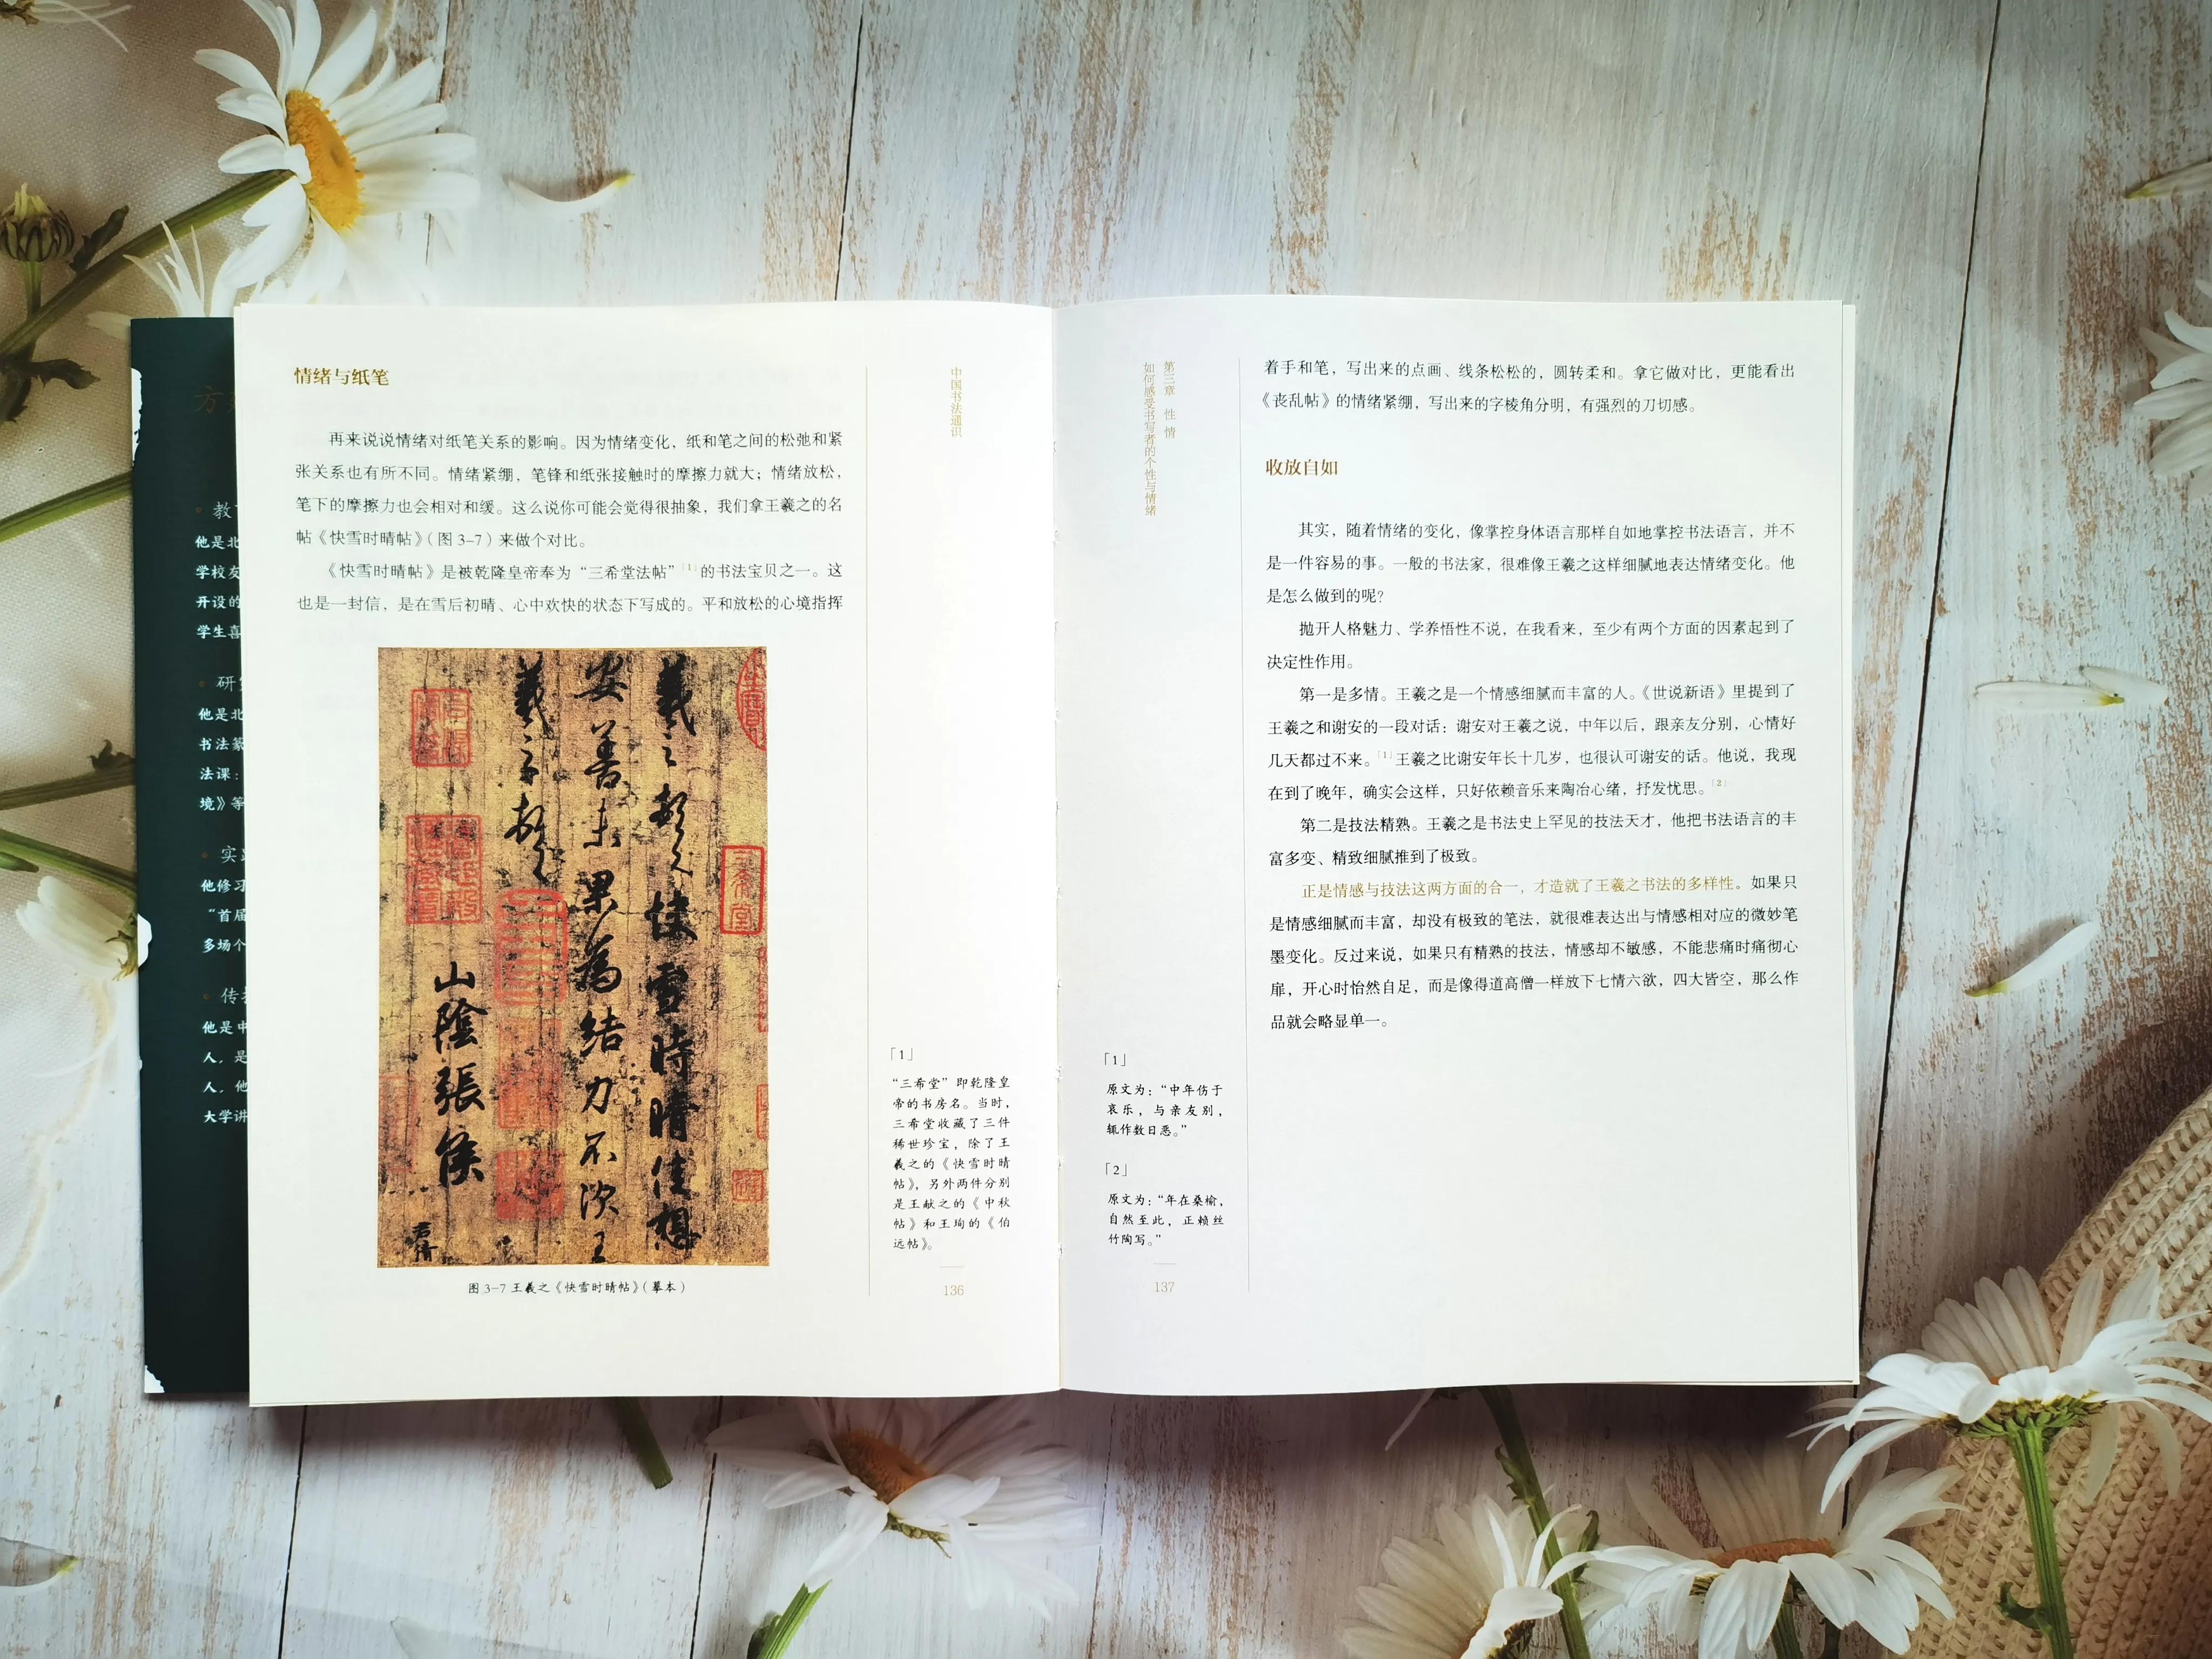 方
• 教
他是北
学校友
开设的
学生喜
• 研
他是北
书法篆
法课：
境》等
• 实
他修习
“首届
多场个
• 传
他是中
人，是
人，他
大学讲
情绪与纸笔
再来说说情绪对纸笔关系的影响。因为情绪变化，纸和笔之间的松弛和紧
张关系也有所不同。情绪紧绷，笔锋和纸张接触时的摩擦力就大；情绪放松，
笔下的摩擦力也会相对和缓。这么说你可能会觉得很抽象，我们拿王羲之的名
帖《快雪时晴帖》（图 3-7）来做个对比。
《快雪时晴帖》是被乾隆皇帝奉为“三希堂法帖”「1」的书法宝贝之一。这
也是一封信，是在雪后初晴、心中欢快的状态下写成的。平和放松的心境指挥
羲之顿首快雪時晴佳想
安善未果為結力不次王
羲之頓首
山陰張侯
君倩
三希堂
图 3-7 王羲之《快雪时晴帖》（摹本）
中国书法通识
「1」
“三希堂”即乾隆皇
帝的书房名。当时，
三希堂收藏了三件
稀世珍宝，除了王
羲之的《快雪时晴
帖》，另外两件分别
是王献之的《中秋
帖》和王珣的《伯
远帖》。
136
第三章 性情
如何感受书写者的个性与情绪
「1」
原文为：“中年伤于
哀乐，与亲友别，
辄作数日恶。”
「2」
原文为：“年在桑榆，
自然至此，正赖丝
竹陶写。”
137
着手和笔，写出来的点画、线条松松的，圆转柔和。拿它做对比，更能看出
《丧乱帖》的情绪紧绷，写出来的字棱角分明，有强烈的刀切感。
收放自如
其实，随着情绪的变化，像掌控身体语言那样自如地掌控书法语言，并不
是一件容易的事。一般的书法家，很难像王羲之这样细腻地表达情绪变化。他
是怎么做到的呢？
抛开人格魅力、学养悟性不说，在我看来，至少有两个方面的因素起到了
决定性作用。
第一是多情。王羲之是一个情感细腻而丰富的人。《世说新语》里提到了
王羲之和谢安的一段对话：谢安对王羲之说，中年以后，跟亲友分别，心情好
几天都过不来。「1」王羲之比谢安年长十几岁，也很认可谢安的话。他说，我现
在到了晚年，确实会这样，只好依赖音乐来陶冶心绪，抒发忧思。「2」
第二是技法精熟。王羲之是书法史上罕见的技法天才，他把书法语言的丰
富多变、精致细腻推到了极致。
正是情感与技法这两方面的合一，才造就了王羲之书法的多样性。如果只
是情感细腻而丰富，却没有极致的笔法，就很难表达出与情感相对应的微妙笔
墨变化。反过来说，如果只有精熟的技法，情感却不敏感，不能悲痛时痛彻心
扉，开心时怡然自足，而是像得道高僧一样放下七情六欲，四大皆空，那么作
品就会略显单一。